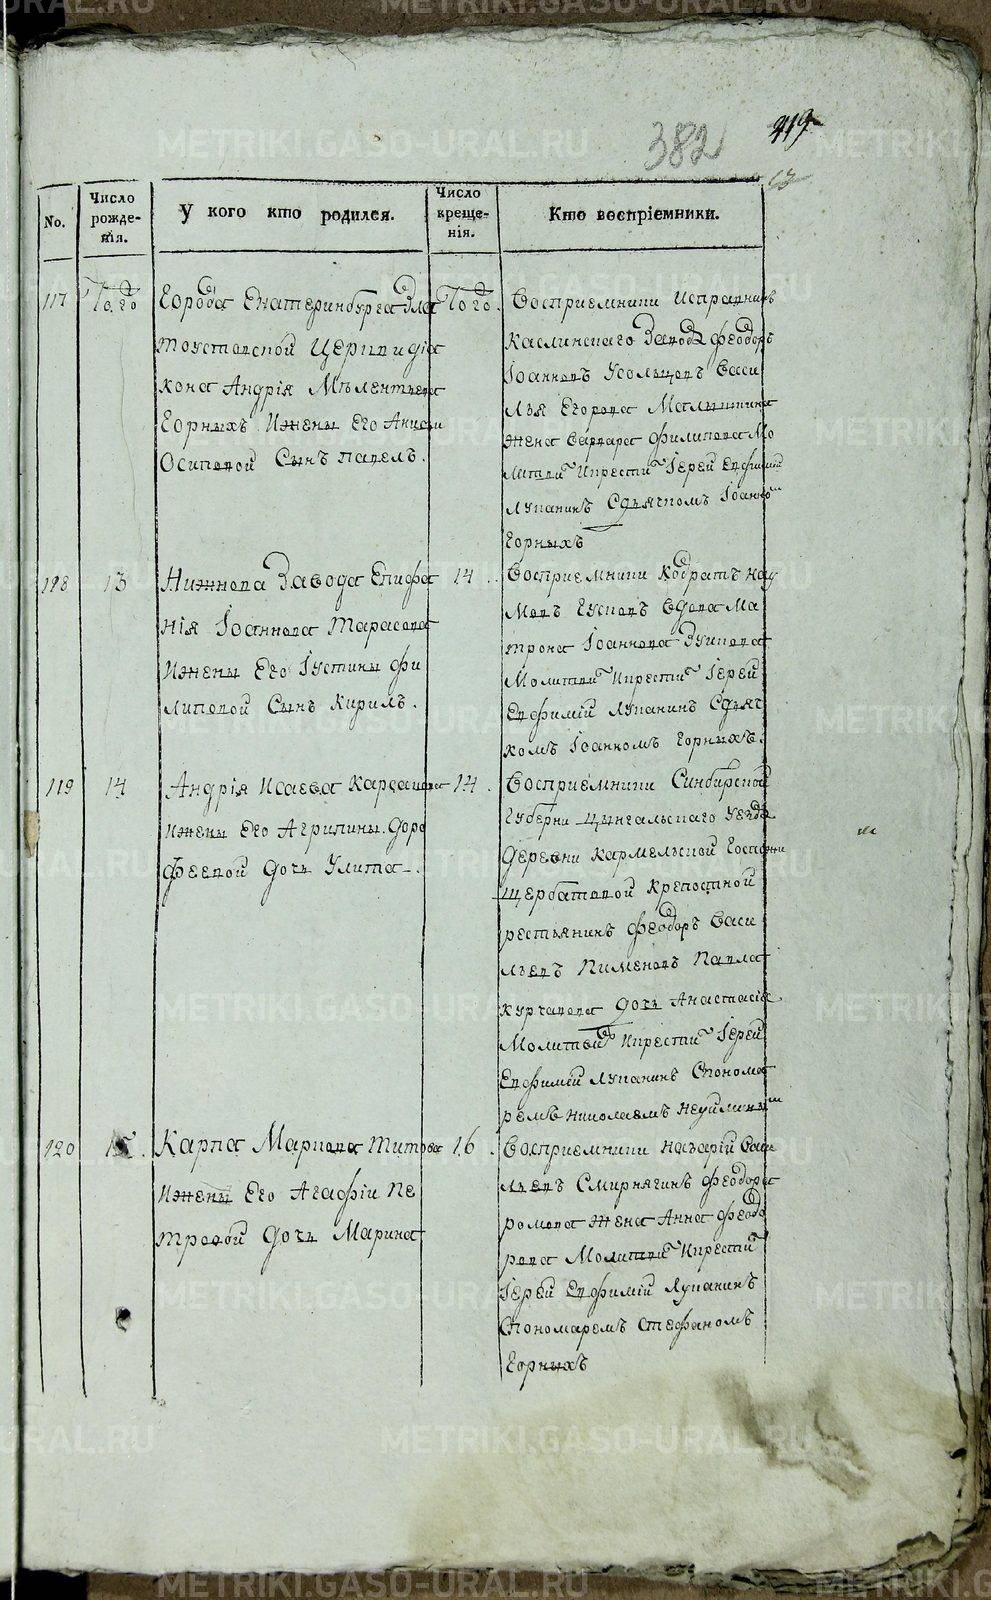 382
419
No.
Число рожде-нія.
У кого кто родился.
Число креще-нія.
Кто воспріемники.
117
Того
Города Екатеринбурга Зла
тоустовской Церкви діа
кона Андрія Мѣлентьева
Горныхъ Ижены Его Аниси
Осиповой Сынъ павелъ.
Того.
Восприемники Исправникъ
каслинскаго Завода феодоръ
Іоанновъ Усольцовъ Васи
лья Егорова Малышкина
жена Варвара филипова Мо
литвилъ Икрестилъ Іерей Евфимий
Лупанинъ Сдьячкомъ Іоанномъ
Горныхъ
118
13
Нижнова Завода Епифа
нія Іоаннова Тарасова
Ижены Его Іустины фи
липовой Сынъ Кирилъ.
14.
Восприемники Кодратъ нау
мовъ Гусковъ Вдова Ма
трона Іоаннова Зуикова
Молитвилъ Икрестилъ Іерей
Евфимій Лупанинъ Сдьяч
комъ Іоанномъ Горныхъ.
119
14
Андрія Исаева
Ижены Его Агрипины доро
феевой дочь Улита.
14.
Восприемники Синбирской
Губерни Уезда
деревни кармельской Госпожи
Щербатовой Крепостной
рестьянинъ феодоръ Васи
льевъ Пименовъ Павла
курчавова дочь Анастасія
Молитвилъ Икрестилъ Іерей
Евфимій Лупанинъ Спонома
ремъ николаемъ
120
15.
Карпа Маркова Титова
Ижены Его Агафіи Пе
тровой дочь Марина
16.
Восприемники назарій Васи
льевъ Смирнягинъ феодора
ромова жена Анна феодо
рова Молитвилъ Икрестилъ
Іерей Евфимій Лупанинъ
Спономаремъ Стефаномъ
Горныхъ
METRIKI.GASO-URAL.RU